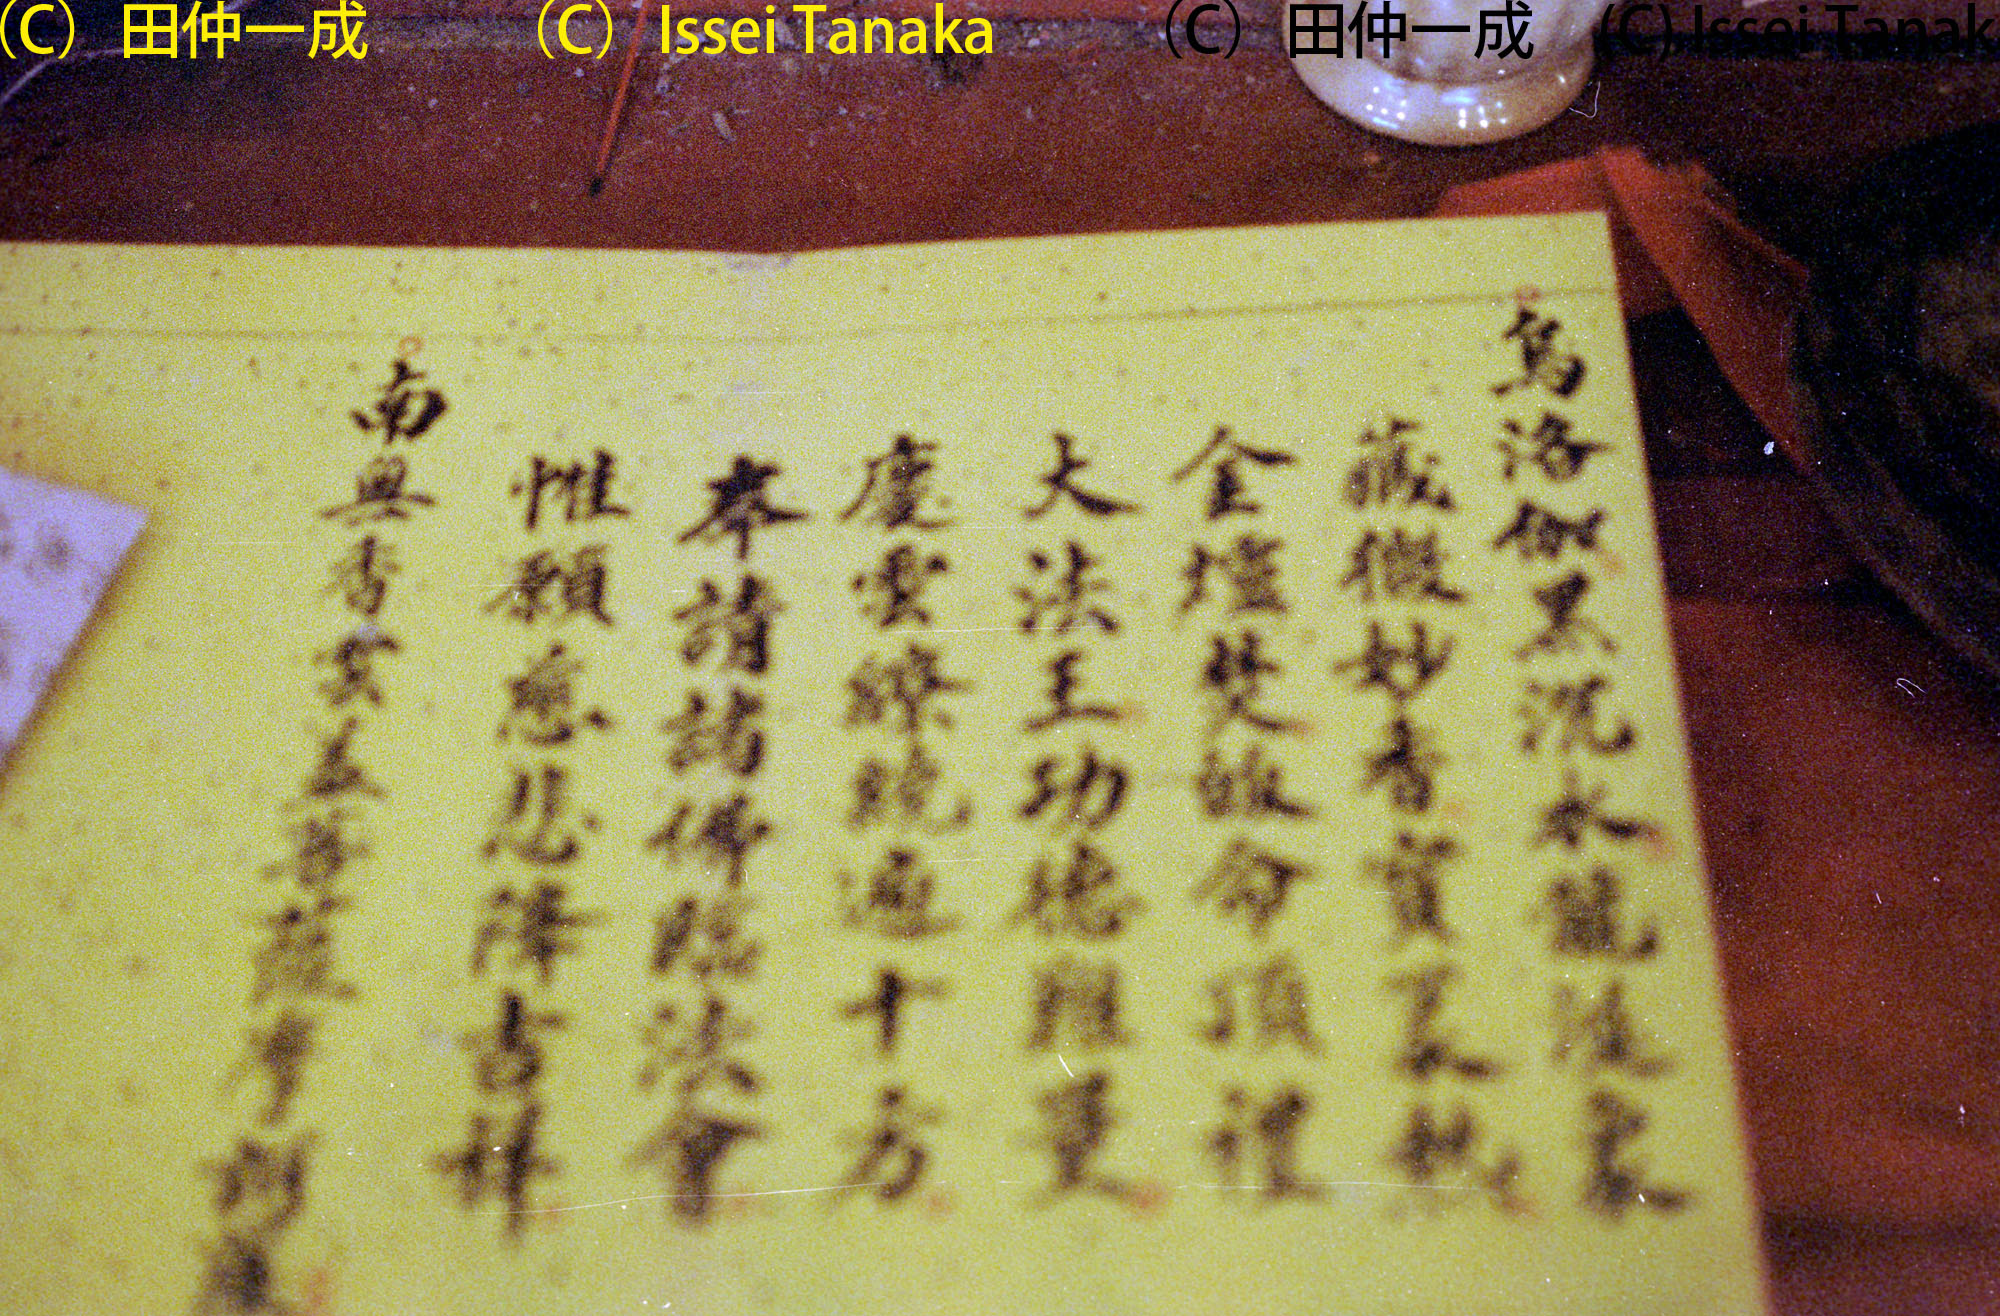 (C) 田仲一成 (C) Issei Tanaka (C) 田仲一成 (C) Issei Tanak
烏洛伽天沉水龍
藏微妙香寶天
金壇焚爇分頂禮
大法王功德難量
慶雲繚繞通十方
奉請諸佛臨法會
惟願慈悲降吉祥
南無香雲盖菩薩摩訶薩